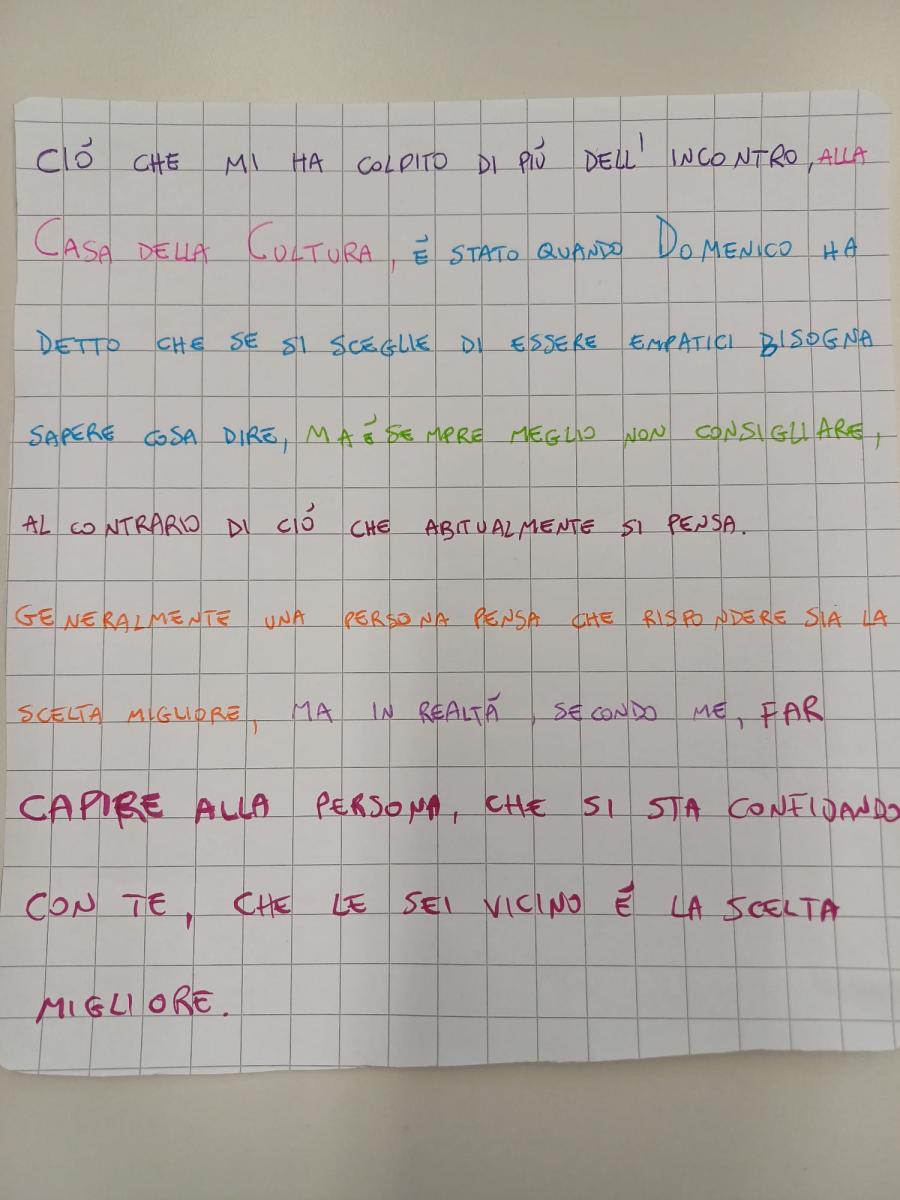 CIÓ CHE MI HA COLPITO DI PIÚ DELL'INCONTRO, ALLA
CASA DELLA CULTURA, É STATO QUANDO DOMENICO HA
DETTO CHE SE SI SCEGLIE DI ESSERE EMPATICI BISOGNA
SAPERE COSA DIRE, MA É SEMPRE MEGLIO NON CONSIGLIARE,
AL CONTRARIO DI CIÓ CHE ABITUALMENTE SI PENSA.
GENERALMENTE UNA PERSONA PENSA CHE RISPONDERE SIA LA
SCELTA MIGLIORE, MA IN REALTÁ, SECONDO ME, FAR
CAPIRE ALLA PERSONA, CHE SI STA CONFIDANDO
CON TE, CHE LE SEI VICINO É LA SCELTA
MIGLIORE.